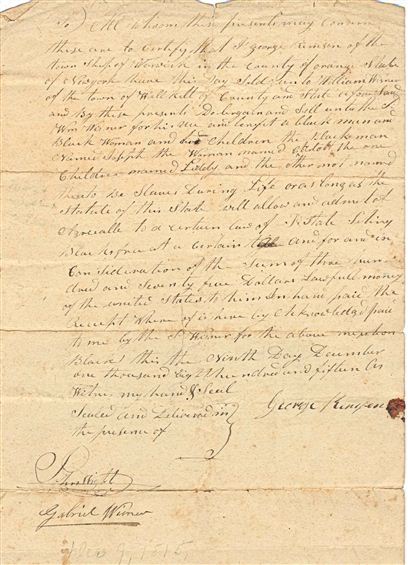 To All whom these presents may Concern
these are to Certify that I George Kimson of the
town ship of Warwick in the County of orange State
of Newyork have this Day Sold unto William Winer
of the town of Wallkill County and State afore Said
and By these presents Do bargain and Sell unto the Sd
Wm Winer for his use and benefit a black man and
Black Woman and two Children the black man
Named Joseph the Woman named the one
Children named and the other not named
them to be Slaves During Life or as long as the
Statute of this State will allow and admit of
Agreeable to a Certain Law of Sd State Setting
Blacks free at a Certain and for and in
Consideration of the Sum of three hun
dred and Seventy five Dollars Lawfull money
of the united States to him In hand paid the
Receipt Where of is here by Acknowledged paid
to me by the Sd Winer for the above mention
Blacks this the Ninth Day December
one thousand Eight hundred and fifteen As
Witness my hand & Seal
Sealed and Delivered in
the presence of
George Kimson
Wright
Gabriel Winer
Dec 9, 1815,